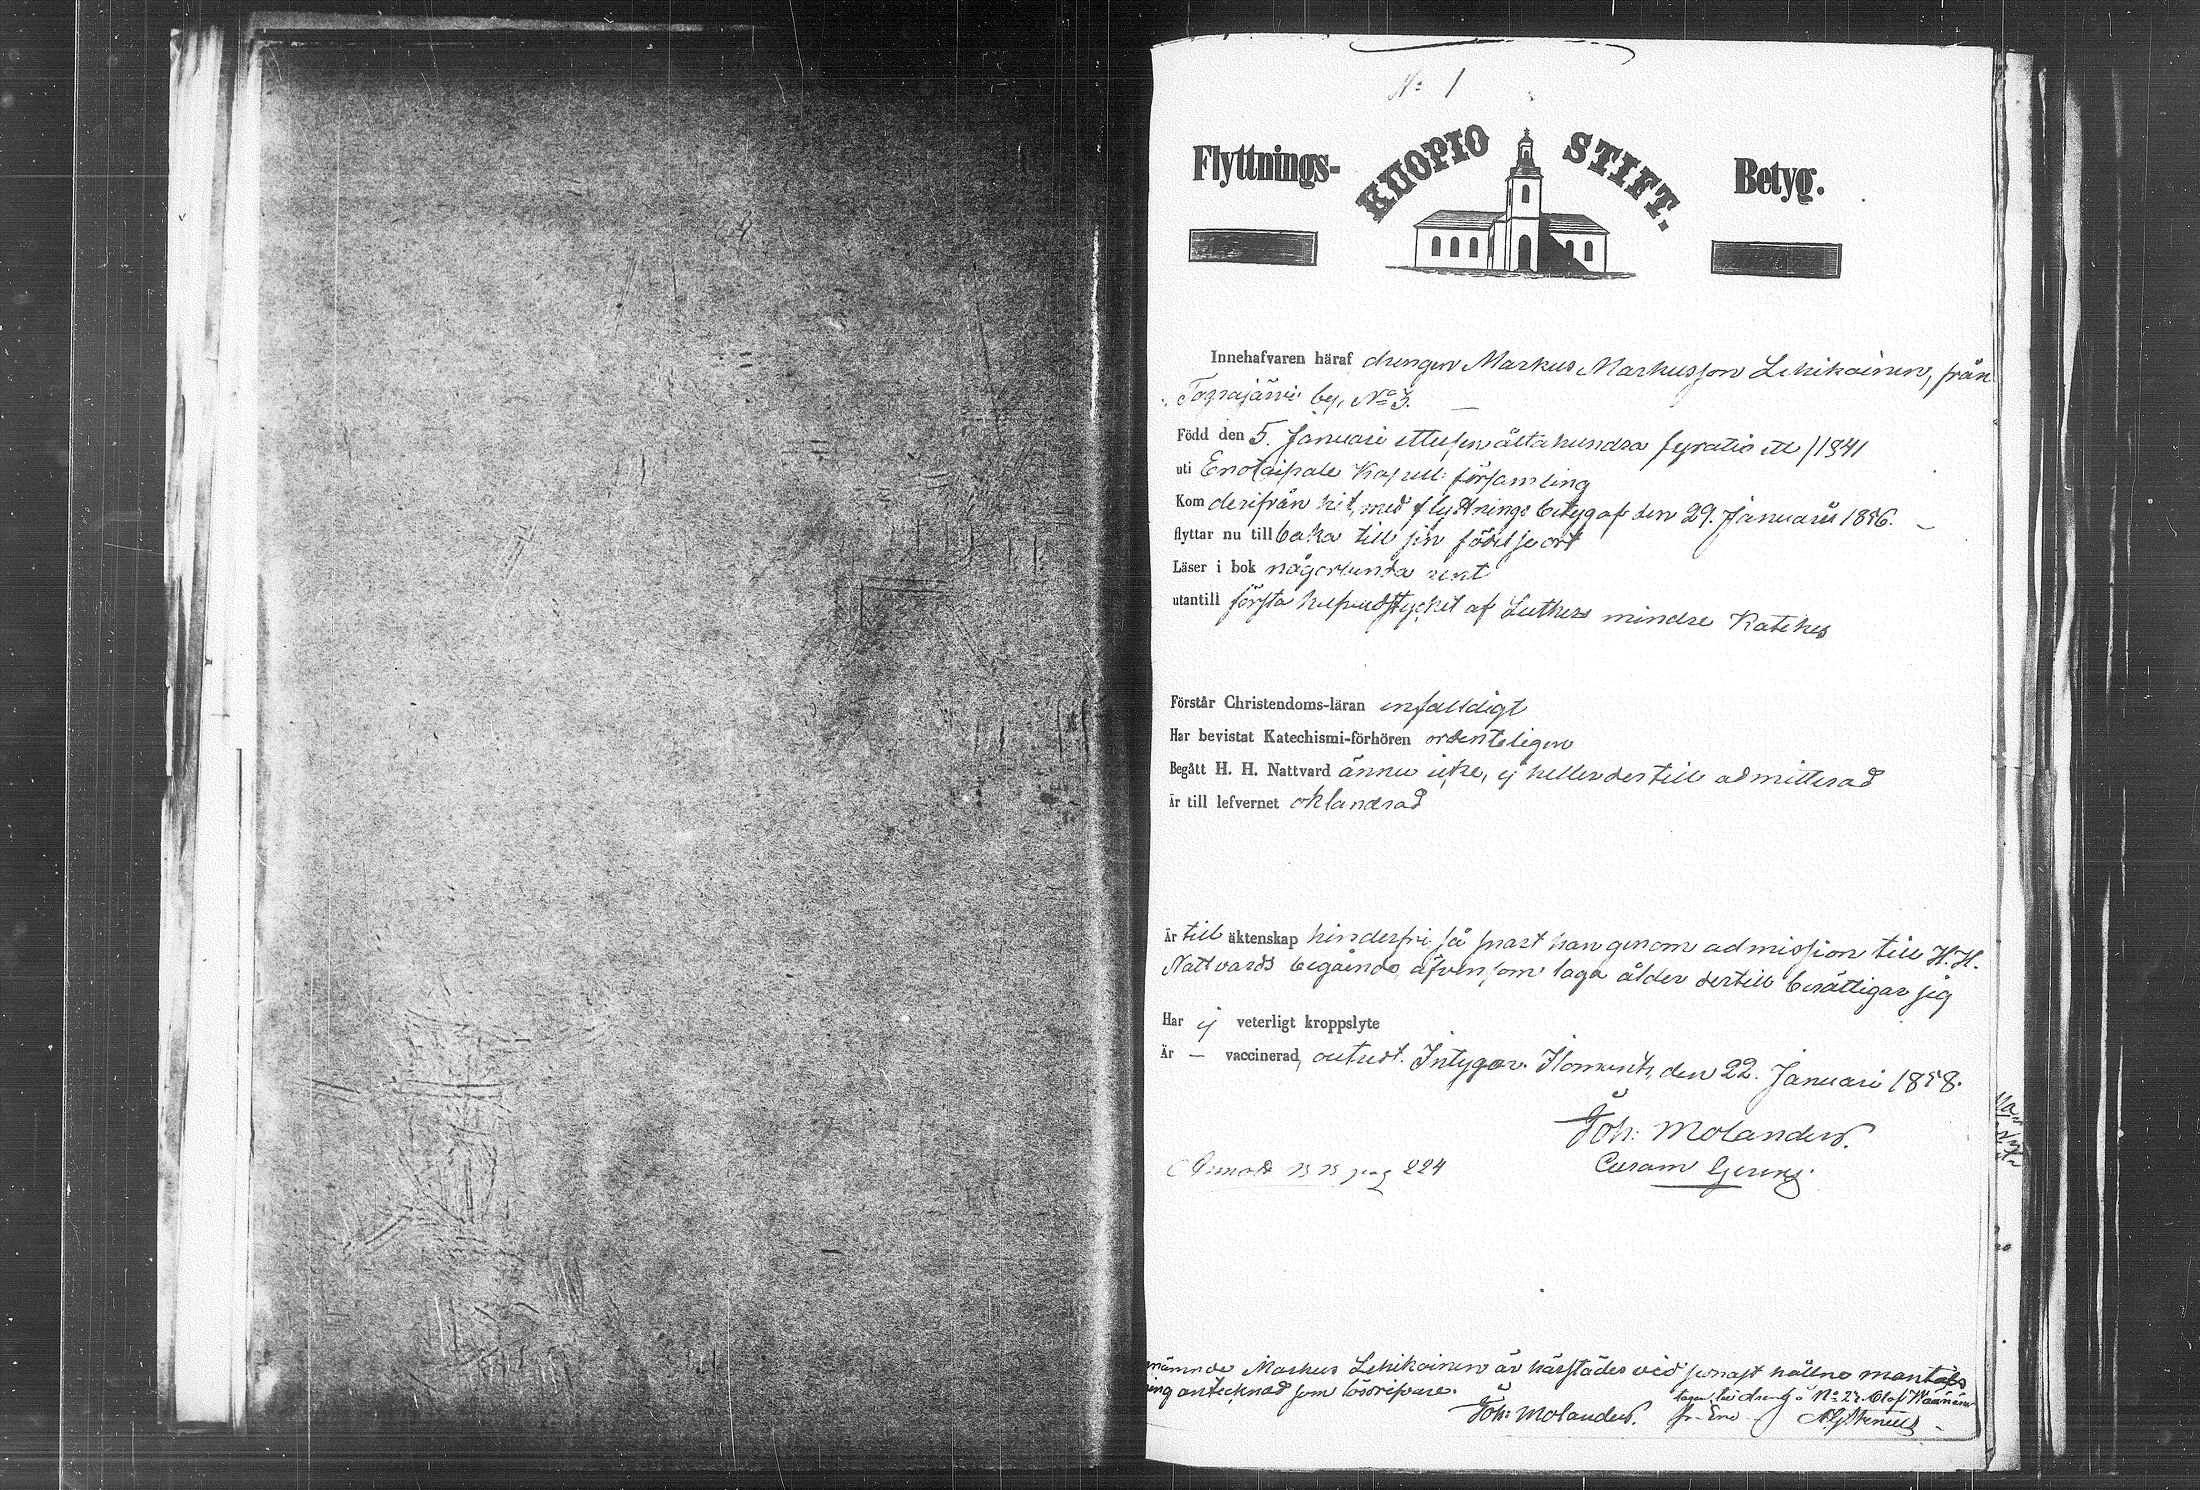 No 1
Flyttnings- KUOPIO STIFT. Betyg.
Innehafvaren häraf drengen Markus Markusson Lehikoinen, från
by, No 3.
Född den 5. Januari ettusen åttahundra fyratio ett /1841
uti Enotaipale Kapell församling
Kom derifrån hit, med flyttnings betyg af den 29. Januari 1856.
flyttar nu tillbaka till sin födelseort
Läser i bok någorlunda rent
utantill första hufvudstycket af Luthers mindre Kateches
Förstår Christendoms-läran enfalldigt
Har bevistat Katechismi-förhören ordenteligen
Begått H. H. Nattvard ännu icke, ej heller dertill admitterad
Är till lefvernet oklandrad
Är till äktenskap hinderfri, så snart han genom admission till H. H.
Nattvards begående, äfvensom laga ålder dertill berättigar sig
Har ej veterligt kroppslyte
Är — vaccinerad, attest. Intygar. Ilomants, den 22. Januari 1858.
Joh: Molander.
Curam Gerens.
pag 224
nämnde Markus Lehikoinen är härstädes vid senast hållne mantals
ing antecknad som lösdrifvare.
Joh: Molander.
No 27. Olof